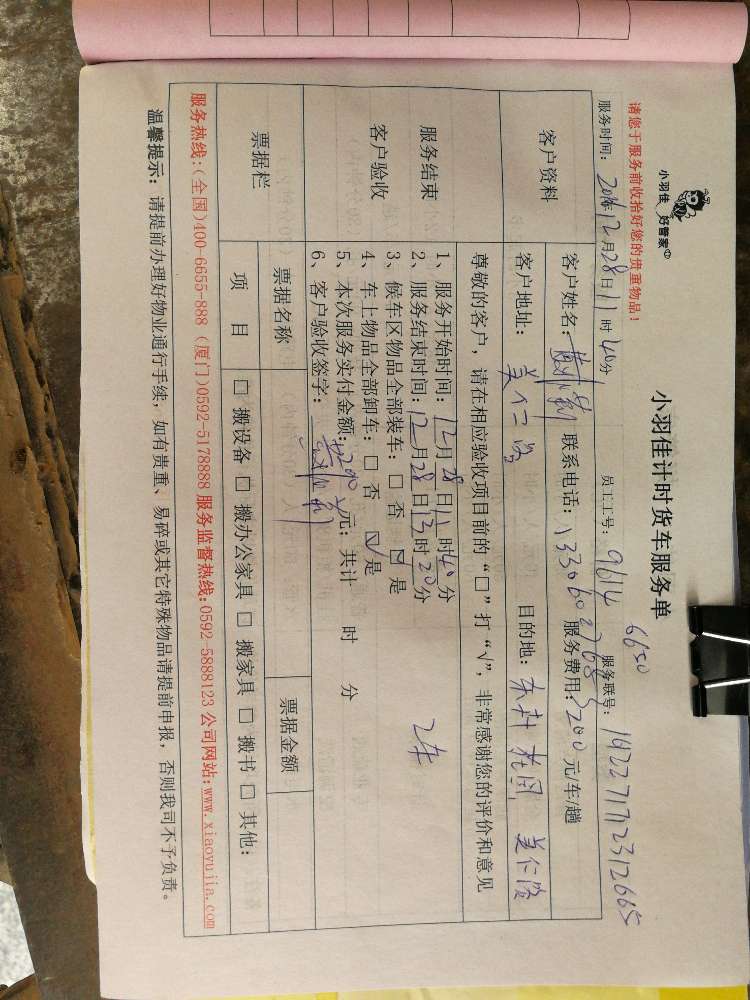 小羽佳 好管家
小羽佳计时货车服务单
请您于服务前收拾好您的贵重物品！
员工工号：9614 6650
服务联号：1922717123 12665
服务时间：12月28日11时40分
客户资料
客户姓名：
联系电话：
服务费用：200元/车/趟
客户地址：美仁
目的地：东村 花园 美仁
尊敬的客户，请在相应验收项目前的“□”打“√”，非常感谢您的评价和意见
服务结束
客户验收
1、服务开始时间：12月28日11时40分
2、服务结束时间：12月28日13时20分
3、候车区物品全部装车：□ 否 ☑ 是
4、车上物品全部卸车：□ 否 ☑ 是
5、本次服务实付金额：200元；共计 时 分
6、客户验收签字：
2车
票据栏
票据名称
票据金额
项 目
□ 搬设备 □ 搬办公家具 □ 搬家具 □ 搬书 □ 其他：
服务热线：（全国）400-6655-888 （厦门）0592-5178888 服务监督热线：0592-5888123 公司网站：www.xiaoyujia.com
温馨提示：请提前办理好物业通行手续，如有贵重、易碎或其它特殊物品请提前申报，否则我司不予负责。